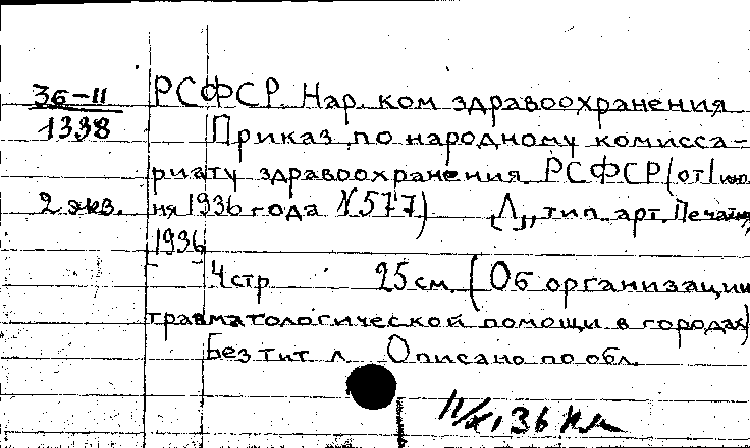 36-11 РСФСР. Нар. ком здравоохранения
1338 Приказ по народному комисса-
риату здравоохранения РСФСР (от 1 ию
2 экз. ня 1936 года №577) [Л], тип. арт. Печатня,
1936
4 стр 25 см. (Об организации
травматологической помощи в городах)
Без тит л. Описано по обл.
11/X, 36